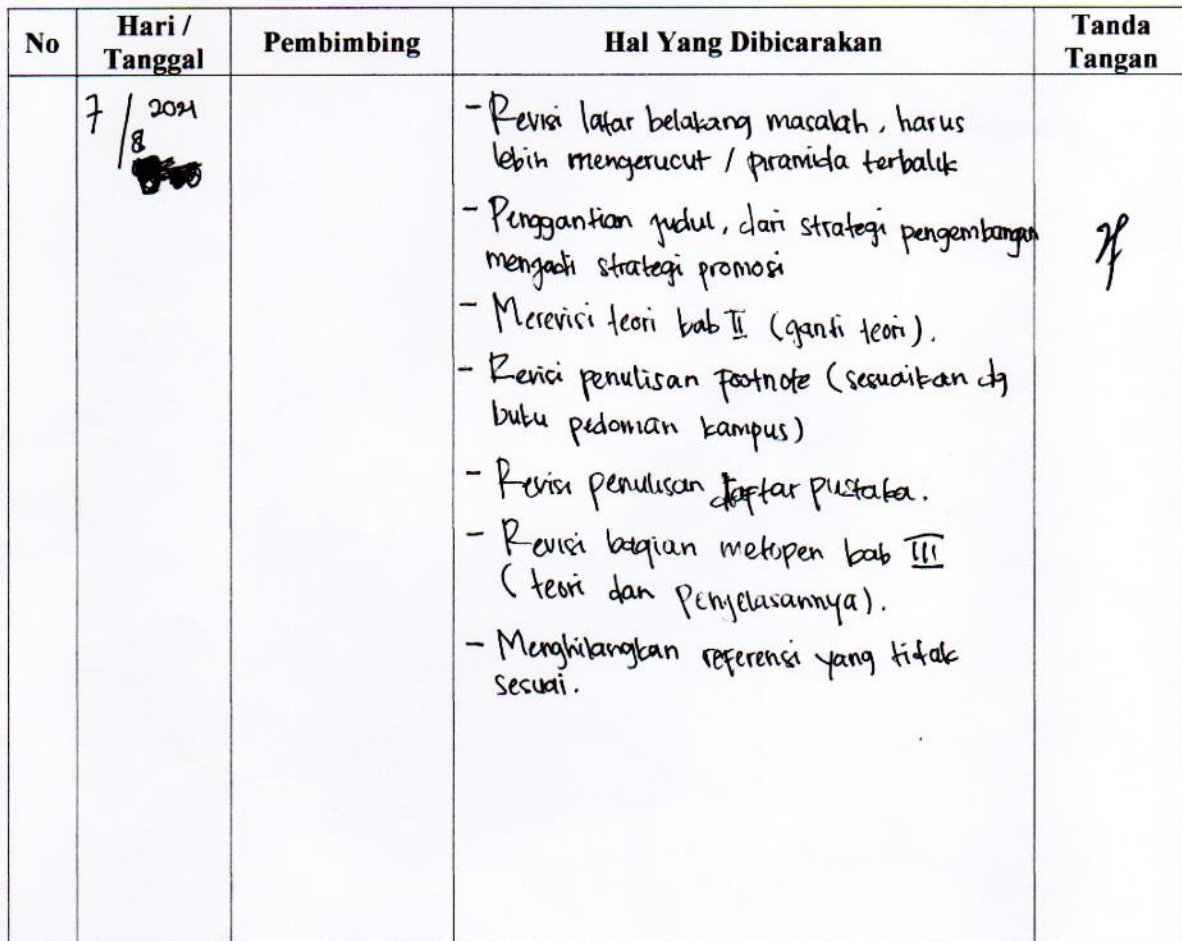 No
Hari /
Tanggal
Pembimbing
Hal Yang Dibicarakan
Tanda
Tangan
7/8 2021
- Revisi latar belakang masalah, harus
lebih mengerucut / piramida terbalik
- Penggantian judul, dari strategi pengembangan
menjadi strategi promosi
- Merevisi teori bab II (ganti teori).
- Revisi penulisan footnote (sesuaikan dg
buku pedoman kampus)
- Revisi penulisan daftar pustaka.
- Revisi bagian metopen bab III
(teori dan penjelasannya).
- Menghilangkan referensi yang tidak
sesuai.